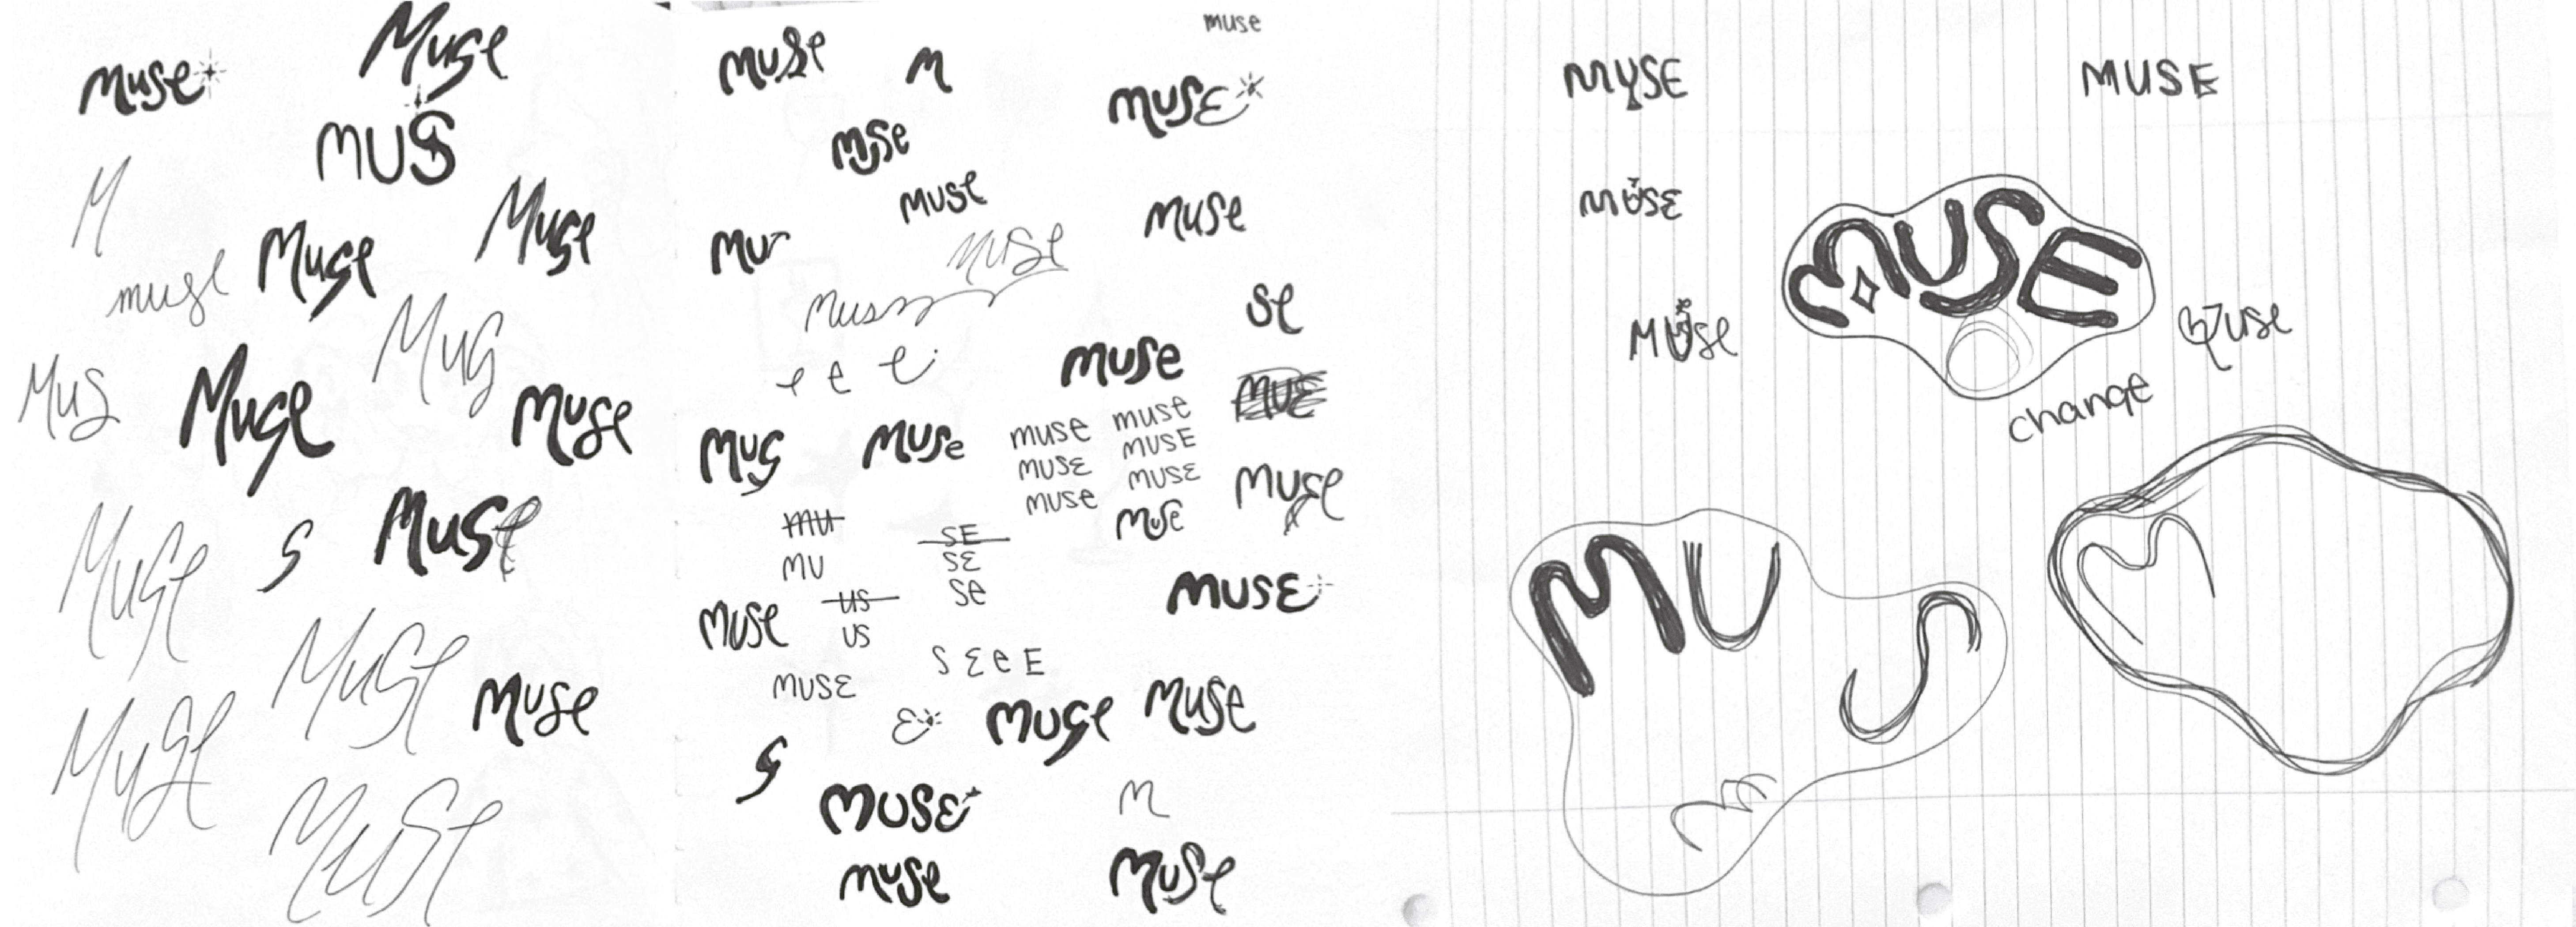 Muse
Muse
MUS
M
Muse
Muse
muse
Mus
Mus
Muse
Muse
Muse
S
Muse
Muse
Muse
Muse
Muse
Muse
muse
Muse
M
MUSE
Muse
Muse
Mu
Muse
Muse
Mus
se
e e e
muse
MUE
Mus
Muse
muse muse
MUSE MUSE
muse MUSE
MUSE
Muse
Muse
mu
MU
SE
SE
se
US
US
Muse
MUSE
S E e E
MUSE
E
Muse
Muse
S
MUSE
M
muse
Muse
MUSE
MUSE
MUSE
MUSE
Muse
Muse
change
MUS
M